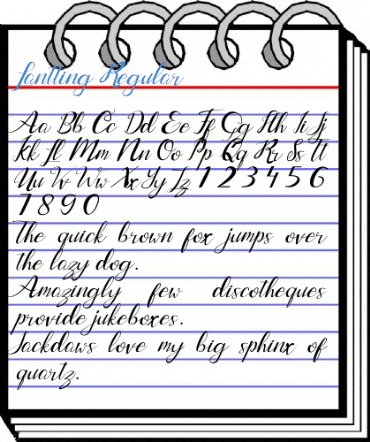 Lantting Regular
Aa Bb Cc Dd Ee Ff Gg Hh Ii Jj
Kk Ll Mm Nn Oo Pp Qq Rr Ss Tt
Uu Vv Ww Xx Yy Zz 1 2 3 4 5 6
7 8 9 0
The quick brown fox jumps over
the lazy dog.
Amazingly few discotheques
provide jukeboxes.
Jackdaws love my big sphinx of
quartz.